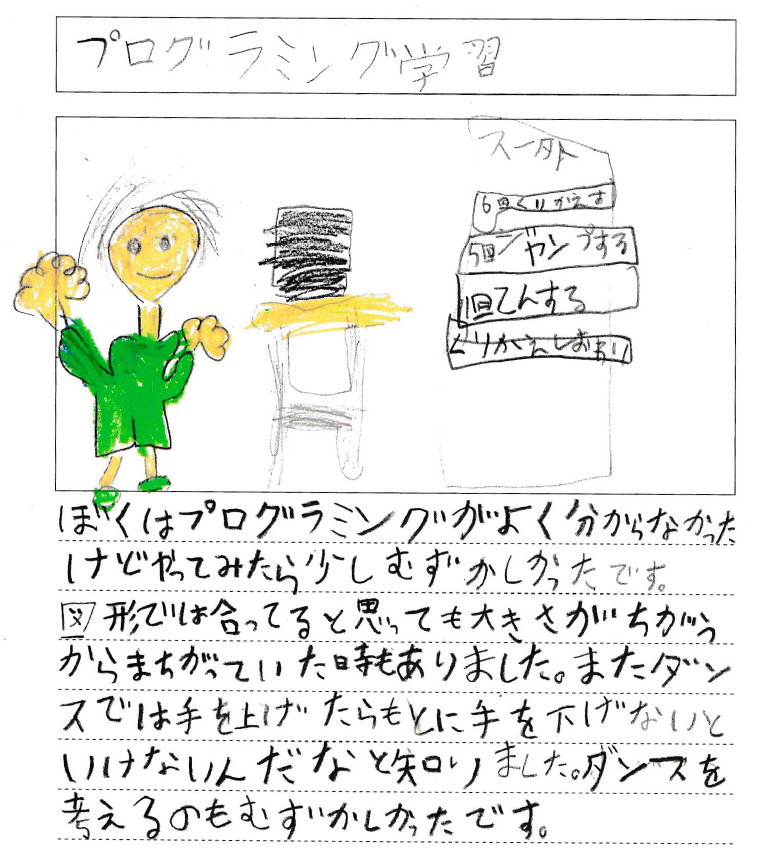 プログラミング学習
スータト
6回くりかえす
5回ジャンプする
1回てんする
くりかえしおわり
ぼくはプログラミングがよく分からなかった
けどやってみたら少しむずかしかったです。
図形では合ってると思っても大きさがちがう
からまちがっていた時もありました。またダン
スでは手を上げたらもとに手を下げないと
いけないんだなと知りました。ダンスを
考えるのもむずかしかったです。